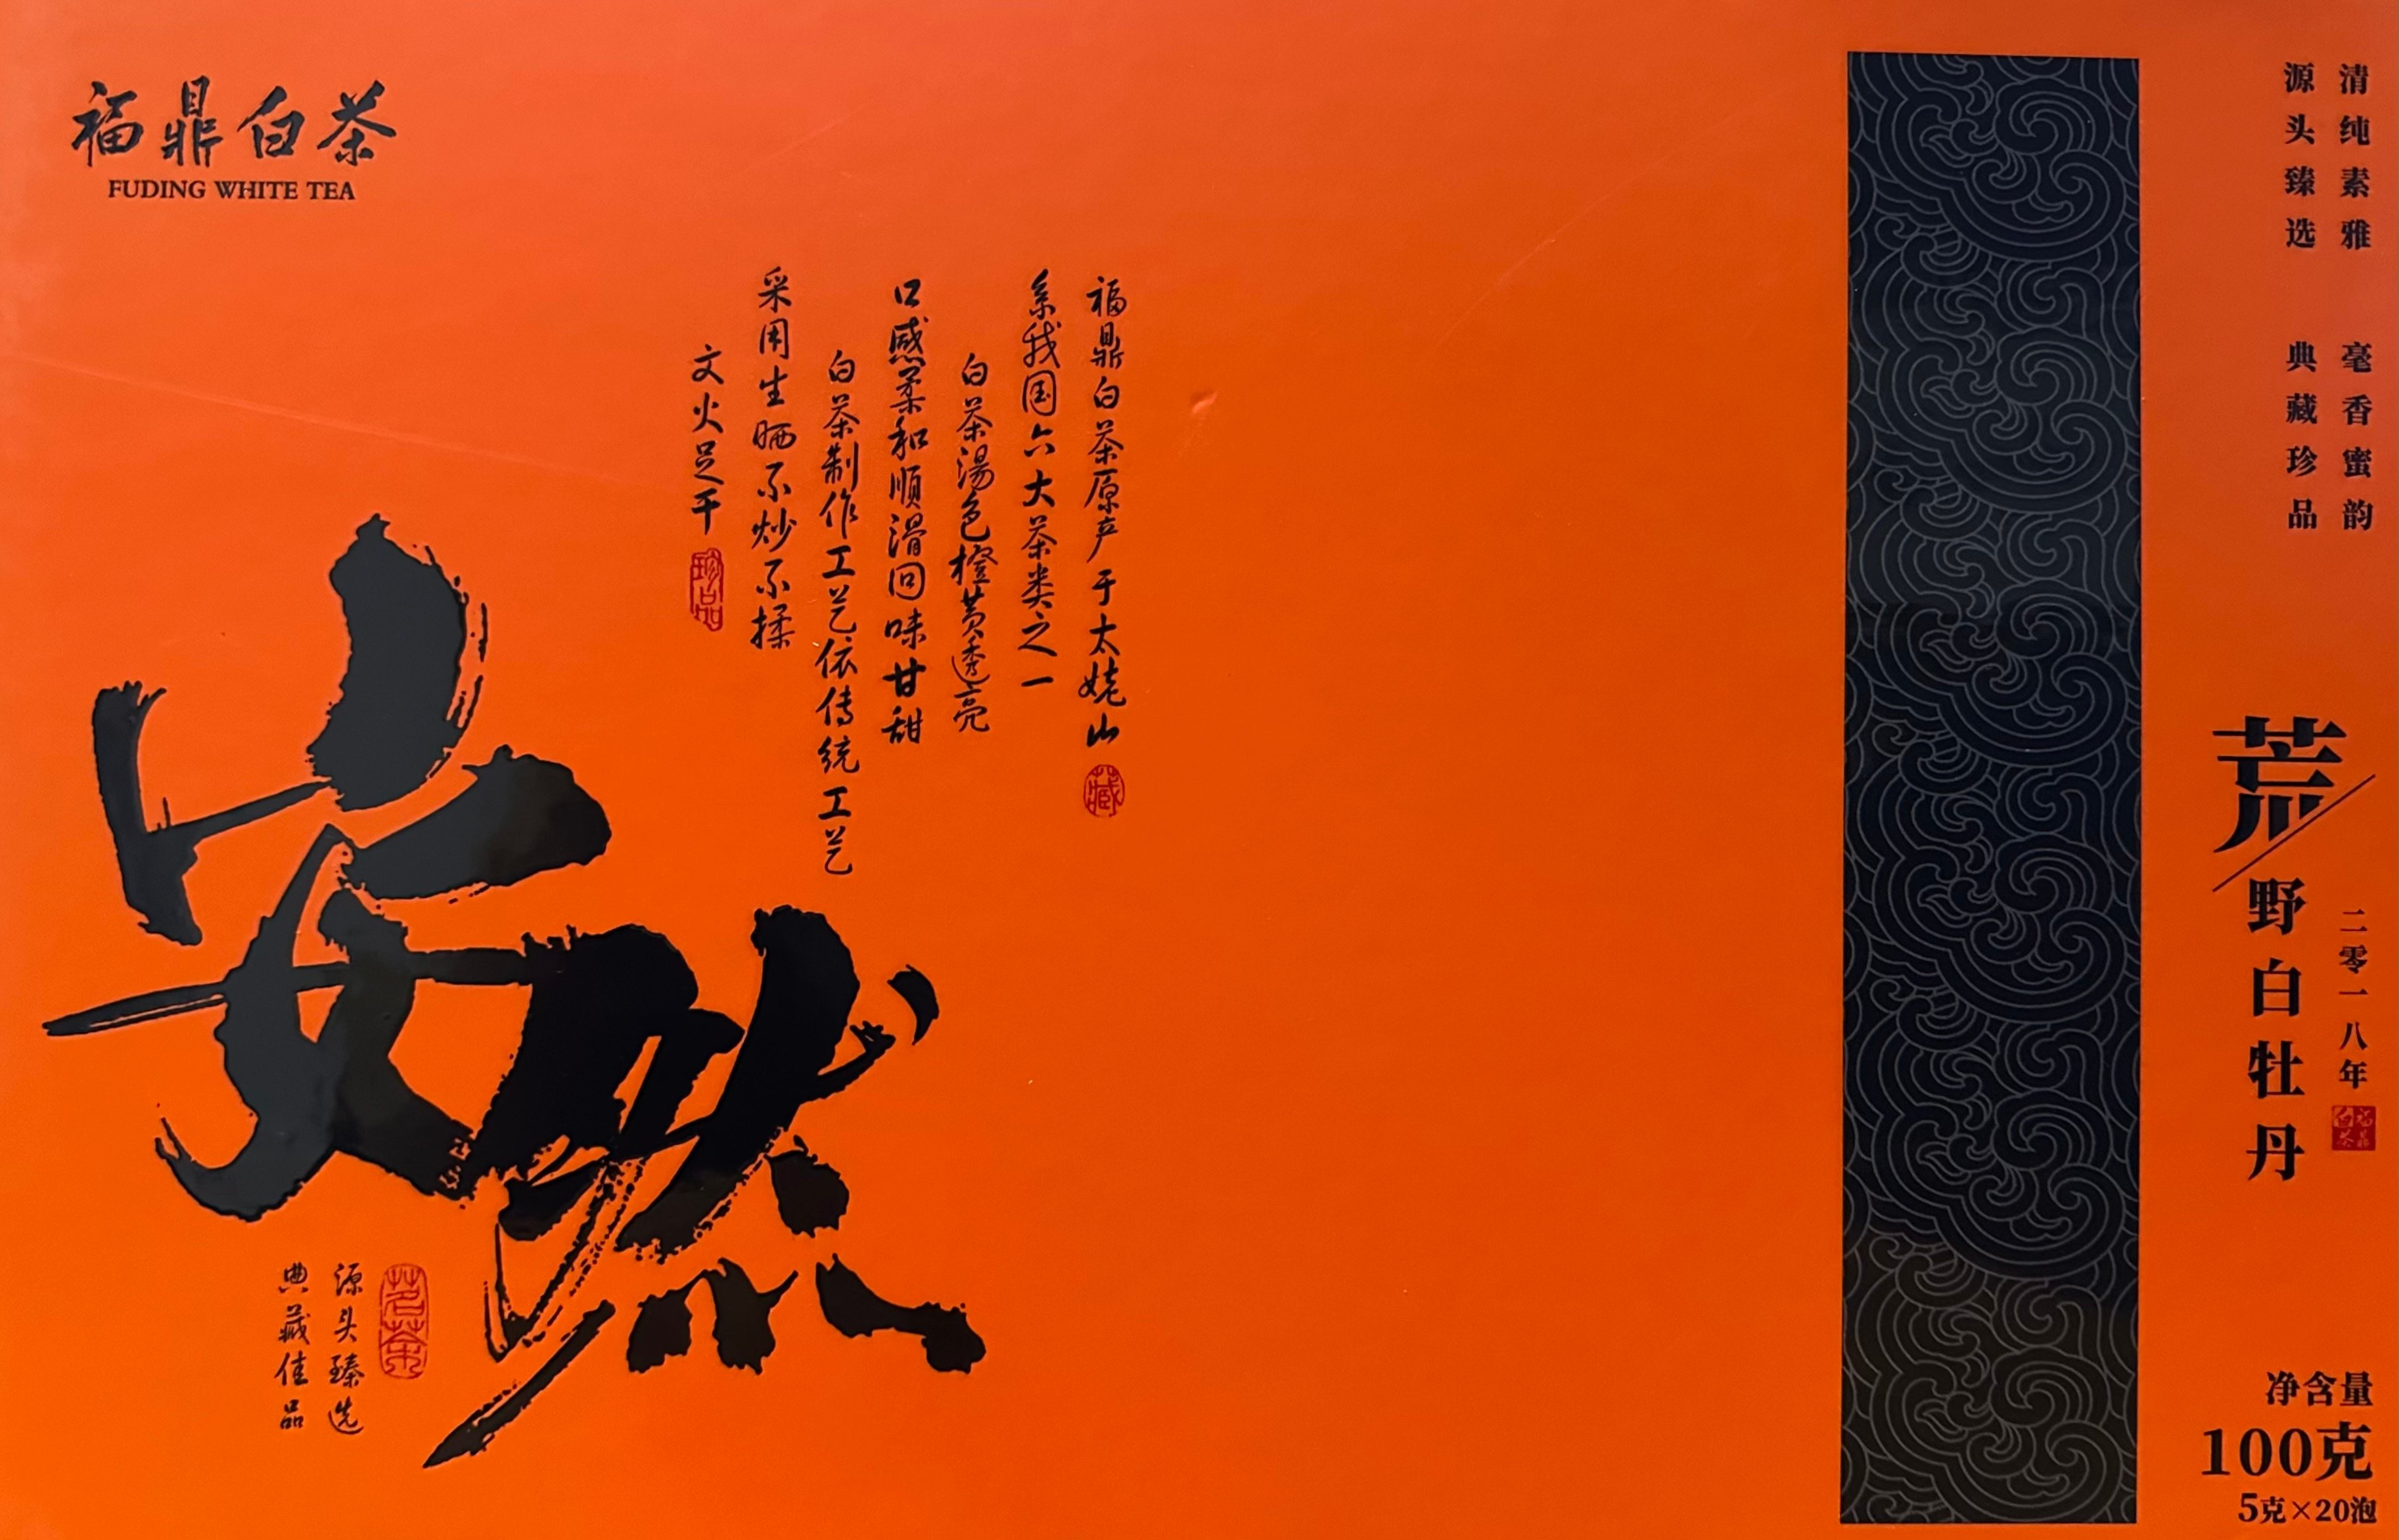 福鼎白茶
FUDING WHITE TEA
福鼎白茶原产于太姥山
藏
系我国六大茶类之一
白茶湯色橙黄透亮
口感柔和順滑回味甘甜
白茶制作工艺依传统工艺
采用生晒不炒不揉
文火足干
珍品
安然
茗茶
源头臻选
典藏佳品
清纯素雅 毫香蜜韵
源头臻选 典藏珍品
荒野白牡丹
二零一八年
福鼎白茶
净含量
100克
5克×20泡